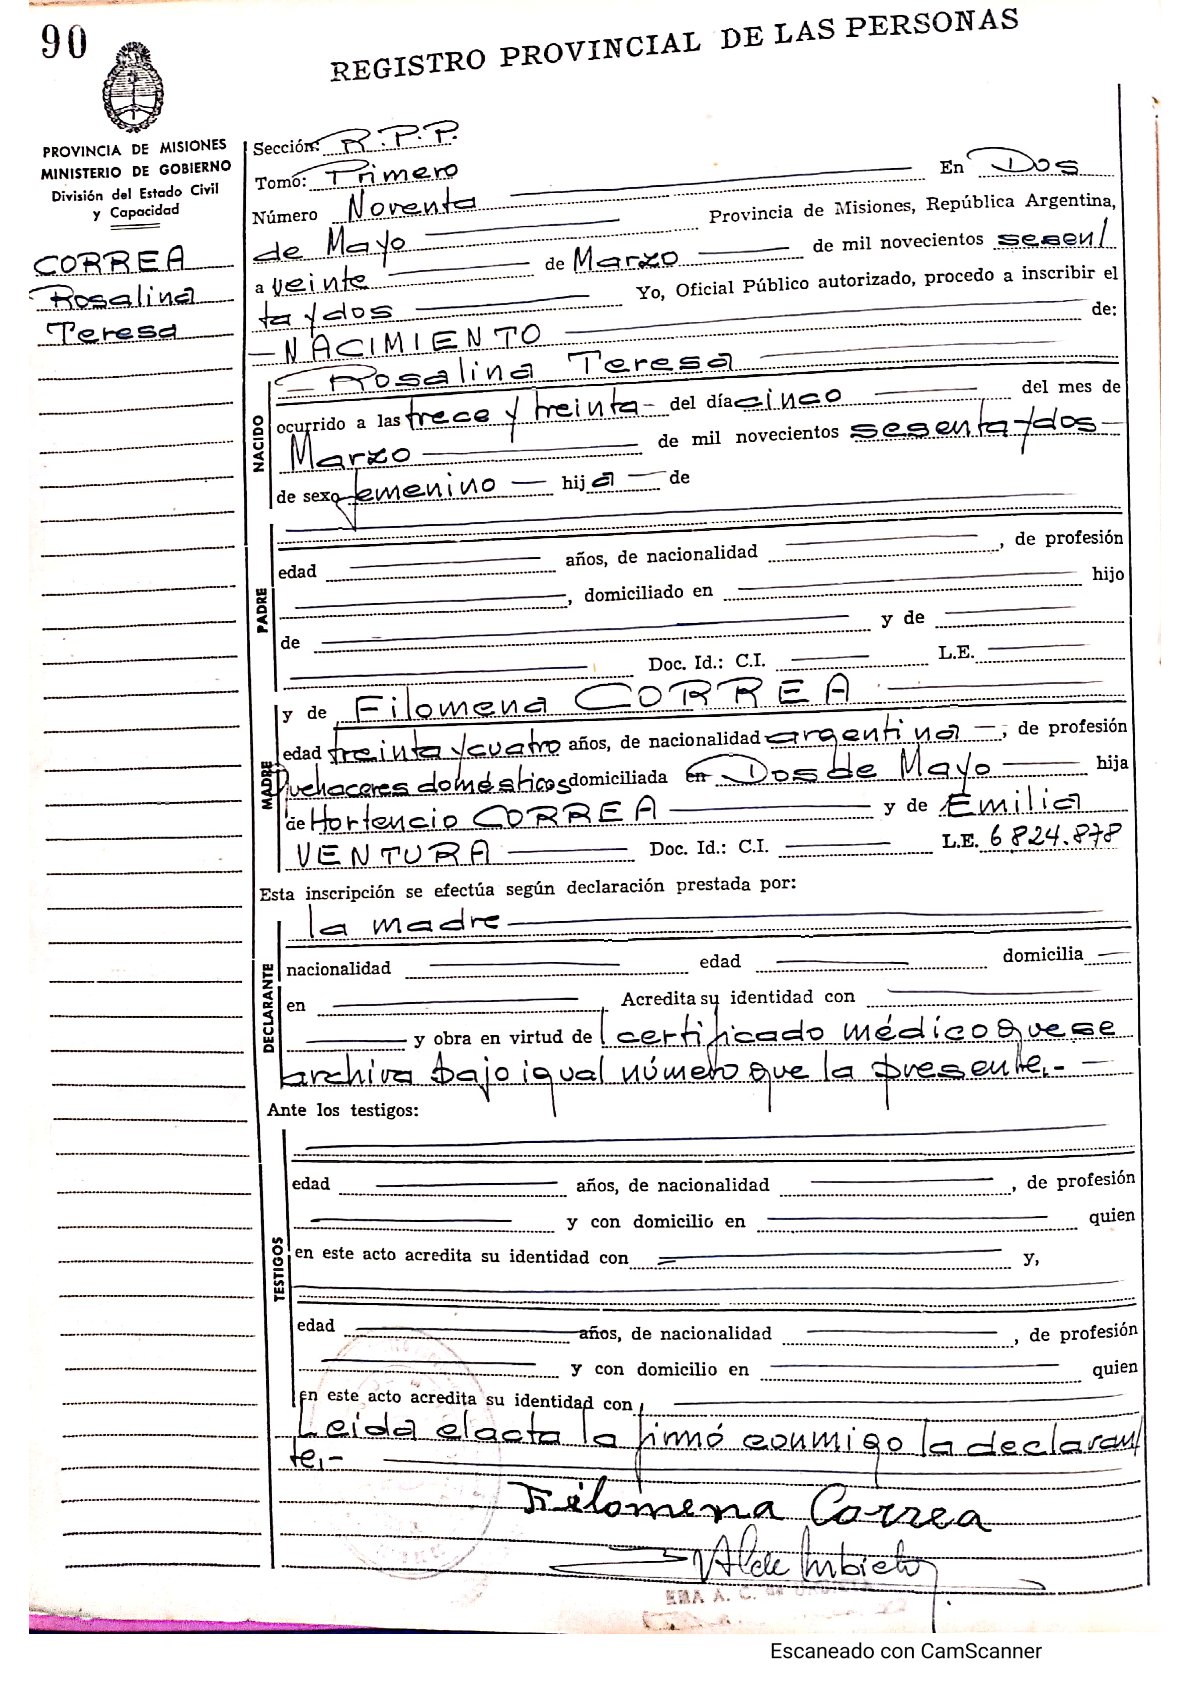 90
REGISTRO PROVINCIAL DE LAS PERSONAS
PROVINCIA DE MISIONES
MINISTERIO DE GOBIERNO
División del Estado Civil
y Capacidad
CORREA
Rosalina
Teresa
Sección: R.P.P.
Tomo: Primero
En Dos
Número Noventa
de Mayo Provincia de Misiones, República Argentina,
a veinte de Marzo de mil novecientos sesen/
ta y dos Yo, Oficial Público autorizado, procedo a inscribir el
NACIMIENTO de:
NACIDO
Rosalina Teresa
ocurrido a las trece y treinta del día cinco del mes de
Marzo de mil novecientos sesenta y dos
de sexo femenino hija de
PADRE
edad años, de nacionalidad , de profesión
, domiciliado en hijo
de y de
Doc. Id.: C.I. L.E.
MADRE
y de Filomena CORREA
edad treinta y cuatro años, de nacionalidad argentina, de profesión
Quehaceres domésticos domiciliada en Dos de Mayo hija
de Hortencio CORREA y de Emilia
VENTURA Doc. Id.: C.I. L.E. 6824.878
Esta inscripción se efectúa según declaración prestada por:
DECLARANTE
la madre
nacionalidad edad domicilia
en Acredita su identidad con
y obra en virtud de certificado médico que se
archiva bajo igual número que la presente.-
Ante los testigos:
TESTIGOS
edad años, de nacionalidad , de profesión
y con domicilio en quien
en este acto acredita su identidad con y,
edad años, de nacionalidad , de profesión
y con domicilio en quien
en este acto acredita su identidad con
Leida el acta la firmó conmigo la declaran/
te.-
Filomena Correa
Escaneado con CamScanner